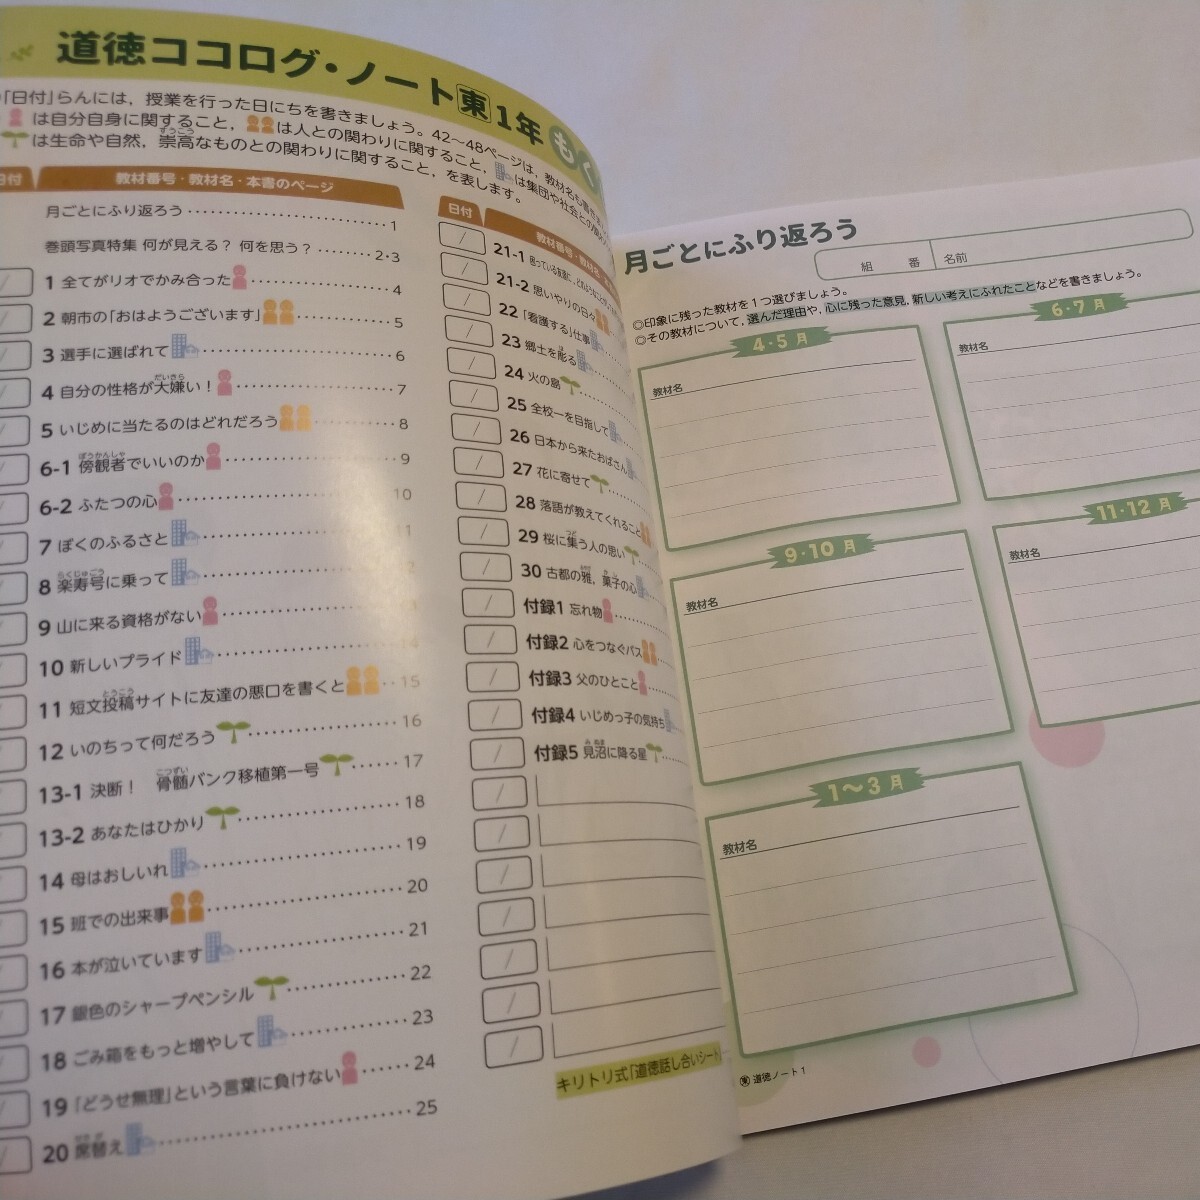 道徳ココログ・ノート東1年 もく
「日付」らんには，授業を行った日にちを書きましょう。42～48ページは，教材名も書き
は自分自身に関すること，は人との関わりに関すること，は集団や社会との関わり
は生命や自然，崇高なものとの関わりに関すること，を表します。
日付 教材番号・教材名・本書のページ
月ごとにふり返ろう 1
巻頭写真特集 何が見える？ 何を思う？ 2・3
1 全てがリオでかみ合った 4
2 朝市の「おはようございます」 5
3 選手に選ばれて 6
4 自分の性格が大嫌い！ 7
5 いじめに当たるのはどれだろう 8
6-1 傍観者でいいのか 9
6-2 ふたつの心 10
7 ぼくのふるさと 11
8 楽寿号に乗って
9 山に来る資格がない
10 新しいプライド 14
11 短文投稿サイトに友達の悪口を書くと 15
12 いのちって何だろう 16
13-1 決断！ 骨髄バンク移植第一号 17
13-2 あなたはひかり 18
14 母はおしいれ 19
15 班での出来事 20
16 本が泣いています 21
17 銀色のシャープペンシル 22
18 ごみ箱をもっと増やして 23
19 「どうせ無理」という言葉に負けない 24
20 席替え 25
日付 教材番号・教材名・
21-1
21-2 思いやりの日々
22 「看護する」仕事
23 郷土を彫る
24 火の島
25 全校一を目指して
26 日本から来たおばさん
27 花に寄せて
28 落語が教えてくれること
29 桜に集う人の思い
30 古都の雅，菓子の心
付録1 忘れ物
付録2 心をつなぐパス
付録3 父のひとこと
付録4 いじめっ子の気持ち
付録5 見沼に降る星
キリトリ式「道徳話し合いシート」
月ごとにふり返ろう
組 番 名前
◎印象に残った教材を1つ選びましょう。
◎その教材について，選んだ理由や，心に残った意見，新しい考えにふれたことなどを書きましょう。
4・5月
教材名
6・7月
教材名
9・10月
教材名
11・12月
教材名
1～3月
教材名
東 道徳ノート1